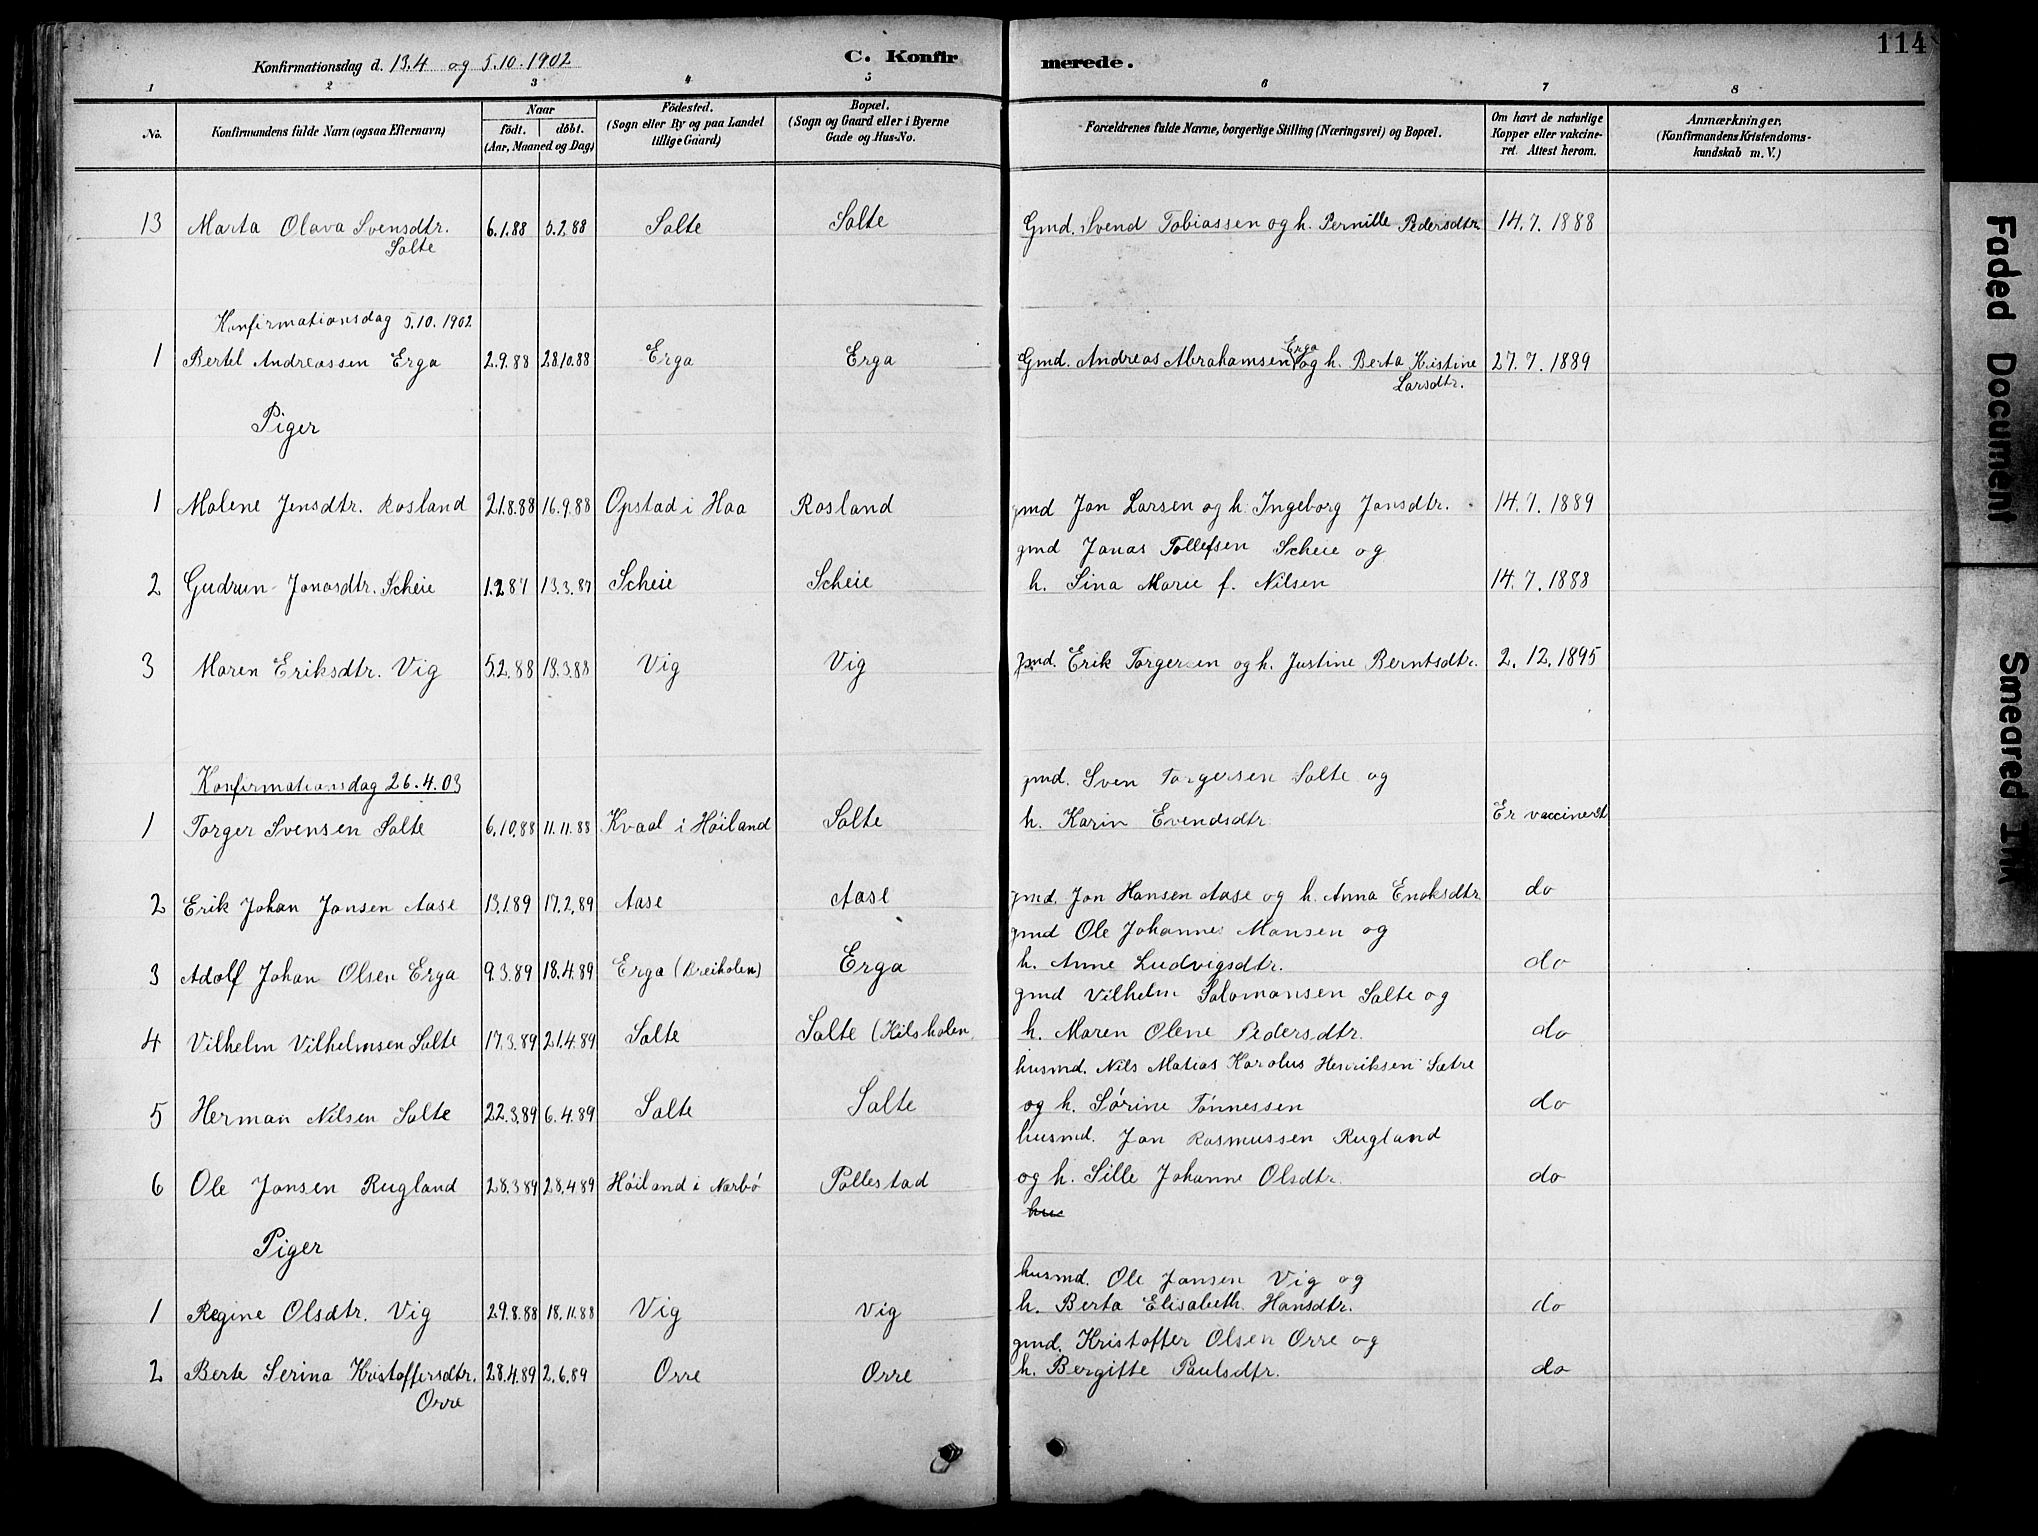 114
Konfirmationsdag d. 13.4 og 5.10.1902 C. Konfirmerede.
1 2 3 4 5 6 7 8
No. Konfirmandens fulde Navn (ogsaa Efternavn) Naar født. døbt. (Aar, Maaned og Dag) Födested. (Sogn eller By og paa Landet tillige Gaard) Bopæl. (Sogn og Gaard eller i Byerne Gade og Hus-No. Forældrenes fulde Navne, borgerlige Stilling (Næringsvei) og Bopæl. Om havt de naturlige Kopper eller vakcineret. Attest herom. Anmærkninger, (Konfirmandens Kristendomskundskab m. V.)
13 Marta Olava Svensdtr. Salte 6.1.88 5.2.88 Salte Salte Gmd. Svend Tobiassen og h. Pernille Pedersdtr. 14.7.1888
Konfirmationsdag 5.10.1902
1 Bertel Andreassen Erga 2.9.88 28.10.88 Erga Erga Gmd. Andreas Abrahamsen Erga og h. Berta Kristine Larsdtr. 27.7.1889
Piger
1 Malene Jensdtr. Rosland 21.8.88 16.9.88 Opstad i Haa Rosland gmd Jon Larsen og h. Ingeborg Jonsdtr. 14.7.1889
gmd Jonas Tollefsen Scheie og
2 Gudrun Jonasdtr. Scheie 1.2.87 13.3.87 Scheie Scheie h. Sina Marie f. Nilsen 14.7.1888
3 Maren Eriksdtr. Vig 5.2.88 18.3.88 Vig Vig gmd. Erik Torgersen og h. Justine Berntsdtr. 2.12.1895
Konfirmationsdag 26.4.03 gmd. Sven Torgersen Salte og
1 Torger Svensen Salte 6.10.88 11.11.88 Kvaal i Høiland Salte h. Karin Evendsdtr Er vaccineret
2 Erik Johan Jonsen Aase 13.1.89 17.2.89 Aase Aase gmd. Jon Hansen Aase og h. Anna Enoksdtr do
gmd Ole Johannes Monsen og
3 Adolf Johan Olsen Erga 9.3.89 18.4.89 Erga (Dreiholen) Erga h. Anne Ludvigsdtr. do
gmd Vilhelm Salomonsen Salte og
4 Vilhelm Vilhelmsen Salte 17.3.89 21.4.89 Salte Salte (Kilsholen h. Maren Olene Pedersdtr. do
husmd. Nils Matias Karolus Henriksen Sætre
5 Herman Nilsen Salte 22.3.89 6.4.89 Salte Salte og h. Sørine Tønnessen do
husmd. Jon Rasmussen Rugland
6 Ole Jonsen Rugland 28.3.89 28.4.89 Høiland i Nærbø Pollestad og h. Sille Johanne Olsdtr. do
Piger
husmd. Ole Jonsen Vig og
1 Regine Olsdtr. Vig 29.8.88 18.11.88 Vig Vig h. Berta Elisabeth Hansdtr. do
gmd. Kristoffer Olsen Orre og
2 Berte Serina Kristoffersdtr. Orre 28.4.89 2.6.89 Orre Orre h. Bergitte Paulsdtr. do
Faded Document
Smeared Ink